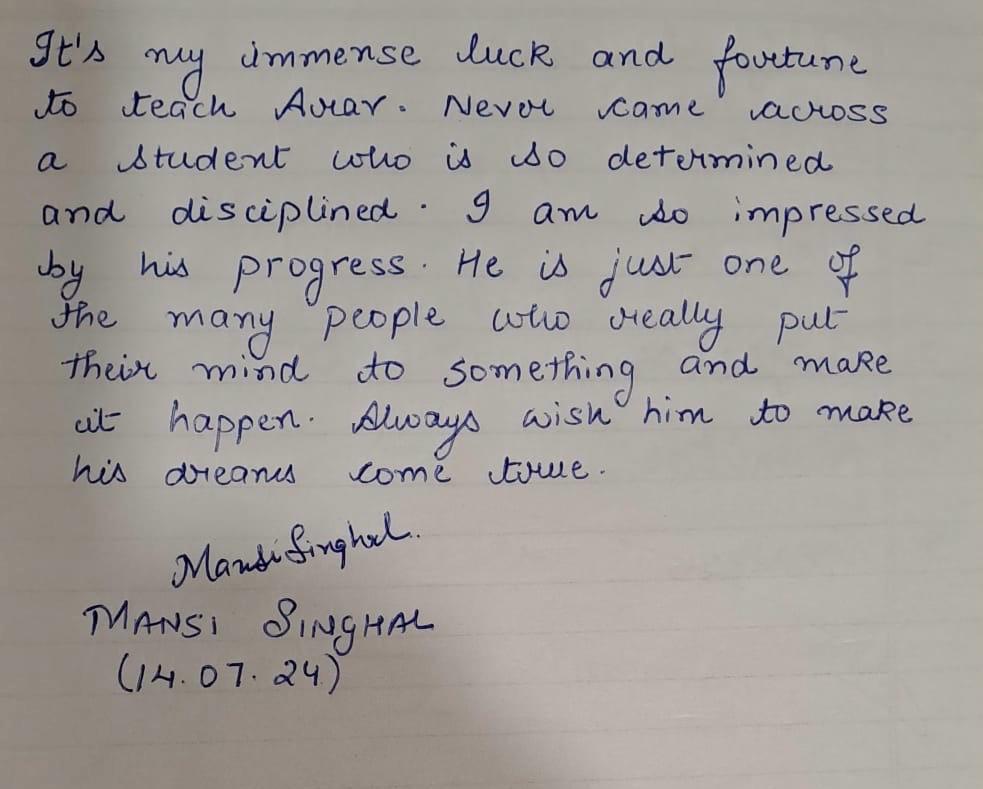 It's my immense luck and fortune
to teach Arav. Never came across
a student who is so determined
and disciplined. I am so impressed
by his progress. He is just one of
the many people who really put
their mind to something and make
it happen. Always wish him to make
his dreams come true.
Mansi Singhal.
MANSI SINGHAL
(14.07.24)